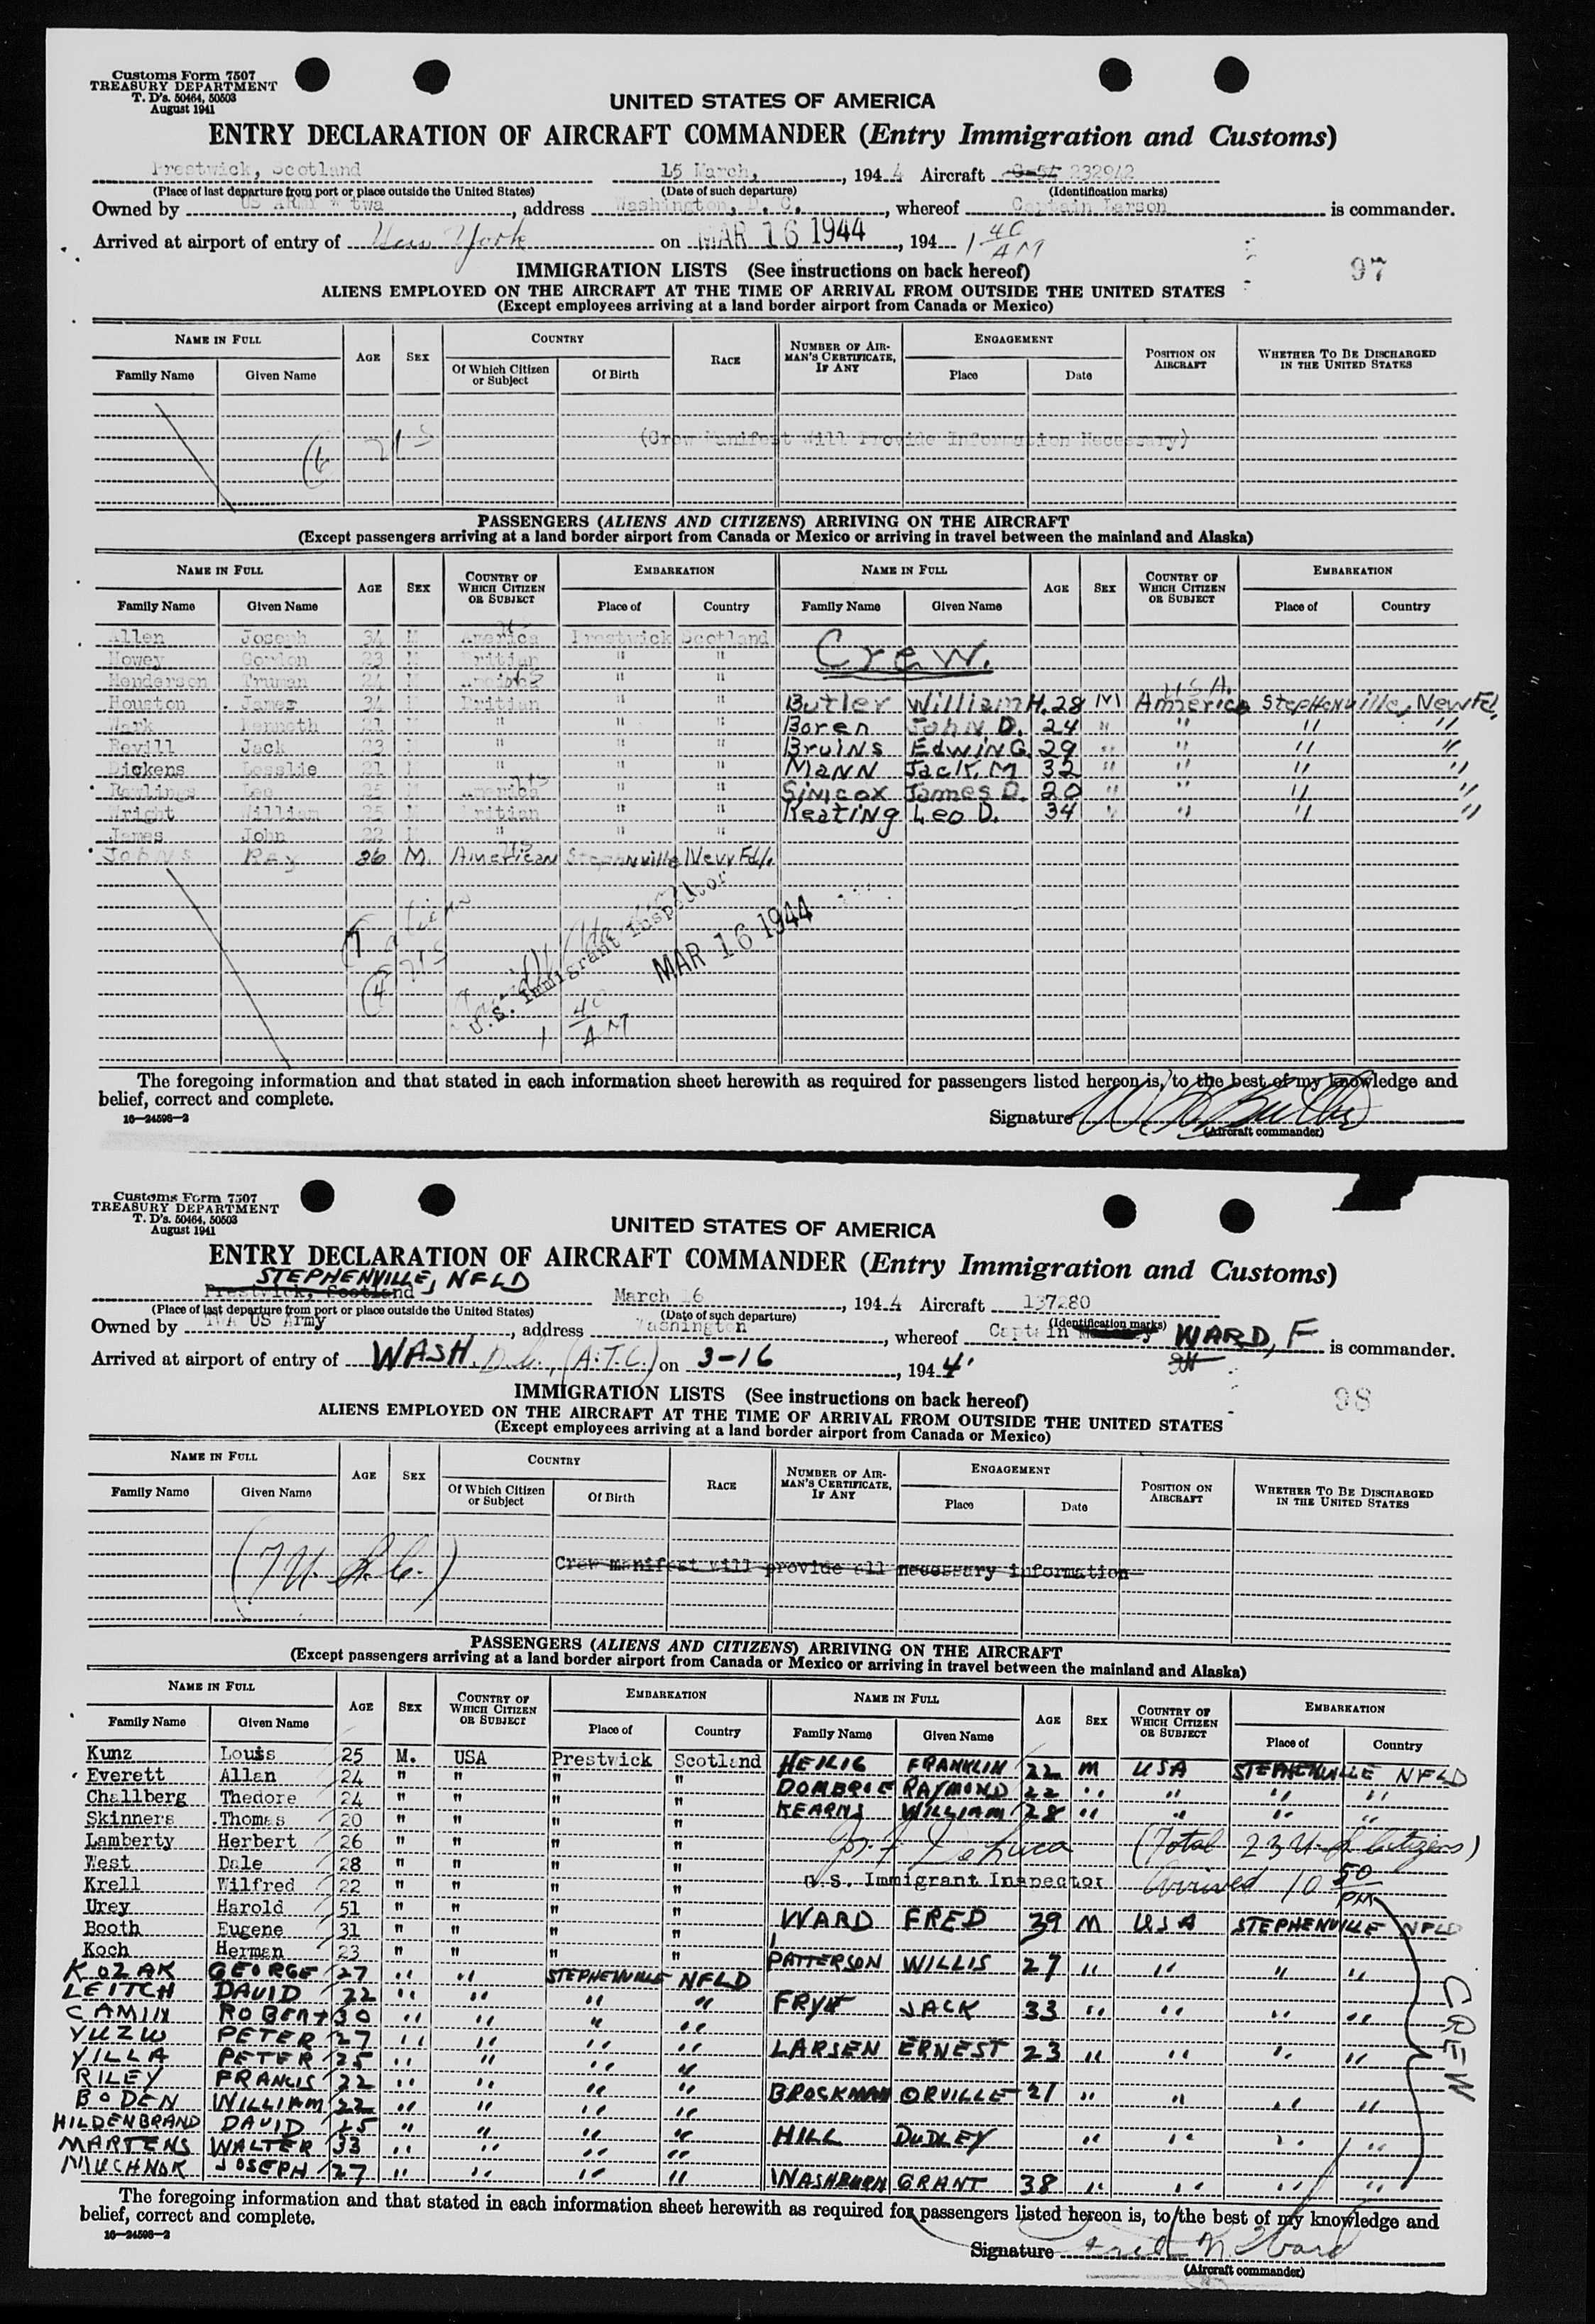 Customs Form 7507
TREASURY DEPARTMENT
T. D's. 50464, 50503
August 1941
UNITED STATES OF AMERICA
ENTRY DECLARATION OF AIRCRAFT COMMANDER (Entry Immigration and Customs)
Prestwick, Scotland 15 March, , 194 4 Aircraft C-54 232942
(Place of last departure from port or place outside the United States) (Date of such departure) (Identification marks)
Owned by US ARMY * twa , address Washington, D. C. , whereof Captain Larson is commander.
Arrived at airport of entry of New York on MAR 16 1944 , 194 1 40 AM
97
IMMIGRATION LISTS (See instructions on back hereof)
ALIENS EMPLOYED ON THE AIRCRAFT AT THE TIME OF ARRIVAL FROM OUTSIDE THE UNITED STATES
(Except employees arriving at a land border airport from Canada or Mexico)
NAME IN FULL AGE SEX COUNTRY RACE NUMBER OF AIRMAN'S CERTIFICATE, IF ANY ENGAGEMENT POSITION ON AIRCRAFT WHETHER TO BE DISCHARGED IN THE UNITED STATES
Family Name Given Name Of Which Citizen or Subject Of Birth Place Date
(Crew Manifest Will Provide Information Necessary)
PASSENGERS (ALIENS AND CITIZENS) ARRIVING ON THE AIRCRAFT
(Except passengers arriving at a land border airport from Canada or Mexico or arriving in travel between the mainland and Alaska)
NAME IN FULL AGE SEX COUNTRY OF WHICH CITIZEN OR SUBJECT EMBARKATION NAME IN FULL AGE SEX COUNTRY OF WHICH CITIZEN OR SUBJECT EMBARKATION
Family Name Given Name Place of Country Family Name Given Name Place of Country
Allen Joseph 34 M America Prestwick Scotland Crew.
Howey Gordon 23 M Britian " "
Henderson Truman 24 M America " "
Houston James 34 M Britian " " Butler William H. 28 M America USA. Stephenville, NewFd.
Mark Kenneth 21 M " " " Boren John D. 24 " " " "
Revill Jack 23 M " " " Bruins Edwin G. 29 " " " "
Dickens Lesslie 21 M " " " Mann Jack M 32 " " " "
Rawlings Lee 25 M America " " Simcox James D. 20 " " " "
Wright William 25 M Britian " " Keating Leo D. 34 " " " "
James John 22 M " " "
Johns Ray 26 M. American US Stephnville New Fd.
7 aliens
4 US
U.S. Immigrant Inspector
MAR 16 1944
1 40 AM
The foregoing information and that stated in each information sheet herewith as required for passengers listed hereon is, to the best of my knowledge and
belief, correct and complete.
16—24598-2
Signature W H Butler
(Aircraft commander)
Customs Form 7507
TREASURY DEPARTMENT
T. D's. 50464, 50503
August 1941
UNITED STATES OF AMERICA
ENTRY DECLARATION OF AIRCRAFT COMMANDER (Entry Immigration and Customs)
STEPHENVILLE, NFLD
Prestwick, Scotland March 16 , 194 4 Aircraft 137280
(Place of last departure from port or place outside the United States) (Date of such departure) (Identification marks)
Owned by TWA US Army , address Washington , whereof Captain WARD, F is commander.
Arrived at airport of entry of WASH. D.C., (A.T.C.) on 3-16 , 194 4
98
IMMIGRATION LISTS (See instructions on back hereof)
ALIENS EMPLOYED ON THE AIRCRAFT AT THE TIME OF ARRIVAL FROM OUTSIDE THE UNITED STATES
(Except employees arriving at a land border airport from Canada or Mexico)
NAME IN FULL AGE SEX COUNTRY RACE NUMBER OF AIRMAN'S CERTIFICATE, IF ANY ENGAGEMENT POSITION ON AIRCRAFT WHETHER TO BE DISCHARGED IN THE UNITED STATES
Family Name Given Name Of Which Citizen or Subject Of Birth Place Date
Crew manifest will provide all necessary information
PASSENGERS (ALIENS AND CITIZENS) ARRIVING ON THE AIRCRAFT
(Except passengers arriving at a land border airport from Canada or Mexico or arriving in travel between the mainland and Alaska)
NAME IN FULL AGE SEX COUNTRY OF WHICH CITIZEN OR SUBJECT EMBARKATION NAME IN FULL AGE SEX COUNTRY OF WHICH CITIZEN OR SUBJECT EMBARKATION
Family Name Given Name Place of Country Family Name Given Name Place of Country
Kunz Louis 25 M. USA Prestwick Scotland HEILIG FRANKLIN 22 M USA STEPHENVILLE NFLD
Everett Allan 24 " " " " RAYMOND 22 " " " "
Challberg Thedore 24 " " " " KEARNS WILLIAM 28 " " " "
Skinners Thomas 20 " " " "
Lamberty Herbert 26 " " " " (Total 23 U.S. Citizens)
West Dale 28 " " " " U.S. Immigrant Inspector Arrived 10 50 PM
Krell Wilfred 22 " " " "
Urey Harold 51 " " " " WARD FRED 39 M USA STEPHENVILLE NFLD
Booth Eugene 31 " " " "
Koch Herman 23 " " " " PATTERSON WILLIS 27 " " " "
KOZAK GEORGE 27 " " STEPHENVILLE NFLD
LEITCH DAVID 22 " " " " JACK 33 " " " "
ROBERT 30 " " " "
PETER 27 " " " " LARSEN ERNEST 23 " " " "
PETER 25 " " " "
RILEY FRANCIS 22 " " " " BROCKMAN ORVILLE 21 " " " "
BODEN WILLIAM 22 " " " "
HILDENBRAND DAVID 25 " " " " HILL DUDLEY " " " "
MARTENS WALTER 33 " " " "
MUCHNOK JOSEPH 27 " " " " WASHBURN GRANT 38 " " " "
CREW
The foregoing information and that stated in each information sheet herewith as required for passengers listed hereon is, to the best of my knowledge and
belief, correct and complete.
16—24598-2
Signature Fred Ward
(Aircraft commander)